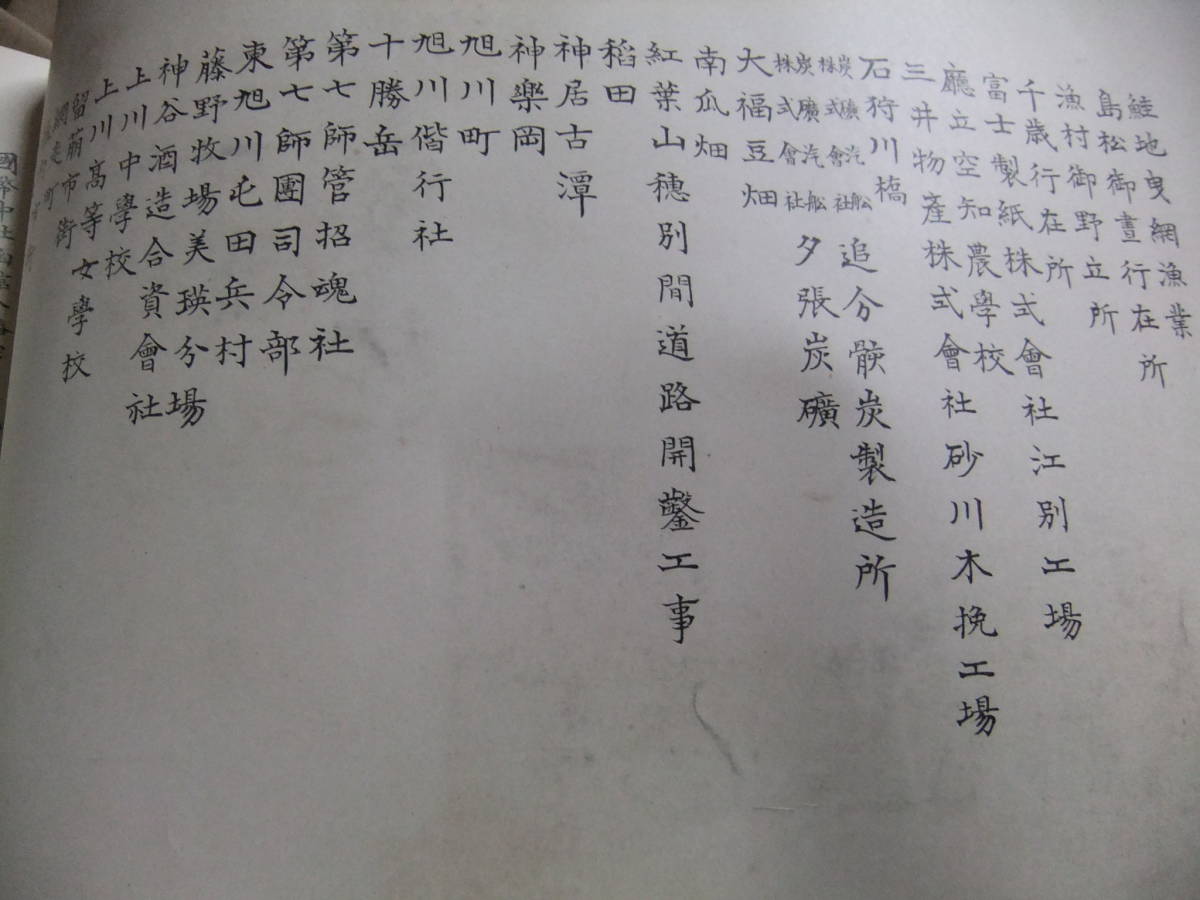 鮭地曳網漁業
島松御晝行在所
漁村御野立所
千歳行在所
富士製紙株式會社江別工場
廳立空知農學校
三井物產株式會社砂川木挽工場
石狩川橋
炭礦汽舩株式會社追分骸炭製造所
炭礦汽舩株式會社夕張炭礦
大福豆畑
南瓜畑
紅葉山穗別間道路開鑿工事
稻田
神居古潭
神樂岡
旭川町
旭川偕行社
十勝岳
第七師管招魂社
第七師團司令部
東旭川屯田兵村
藤野牧場美瑛分場
神谷酒造合資會社
上川中學校
上川高等女學校
留萠市街
網走町
國幣中社